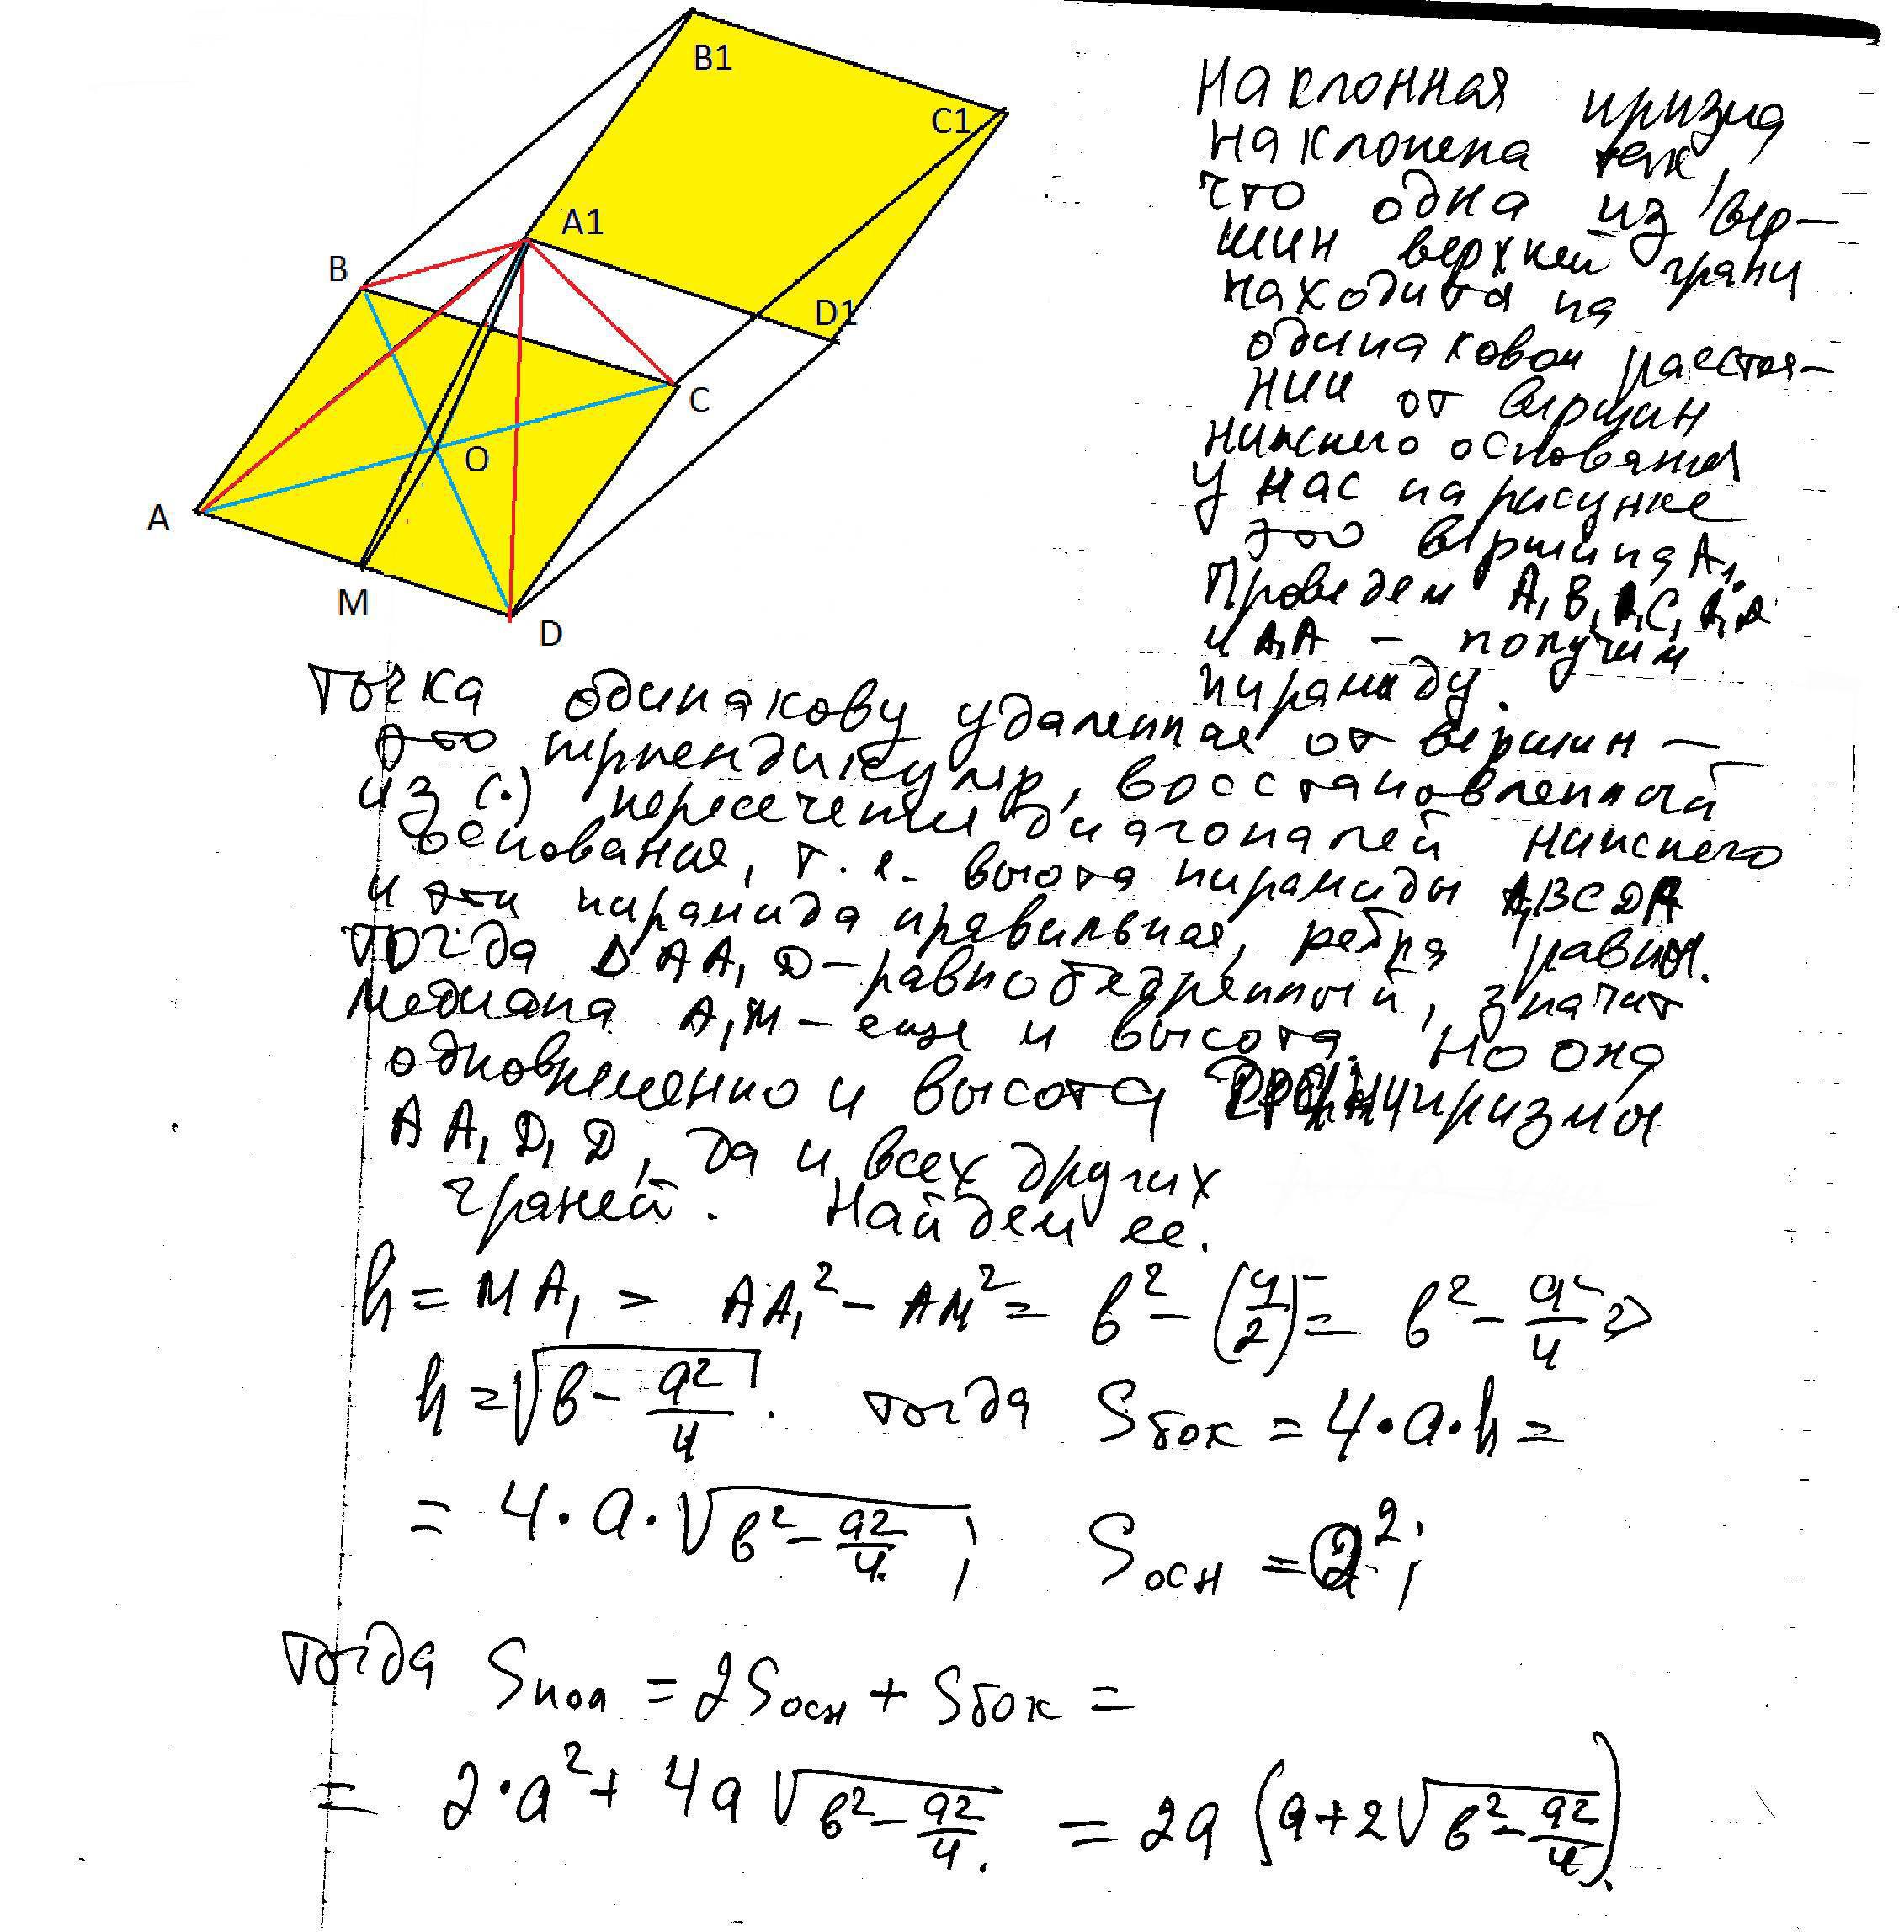 B1
C1
A1
B
D1
C
O
A
M
D
наклонная призма
наклонена так,
что одна из вер-
шин верхней грани
находится на
одинаковом расстоя-
нии от вершин
нижнего основания
У нас на рисунке
это вершина A₁.
Проведем A₁B, A₁C, A₁D
и A₁A – получим
пирамиду.
точка одинакову удаленная от вершин –
это перпендикуляр, восстановленный
из (·) пересечения диагоналей нижнего
основания, т. е. высота пирамиды A₁BCDA
и эта пирамида правильная, ребра равны.
тогда Δ AA₁D – равнобедренный, значит
медиана A₁M – еще и высота. Но она
одновременно и высота призмы
AA₁D₁D, да и всех других
граней. Найдем ее.
h = MA₁ = AA₁² – AM² = в² – (a/2)² = в² – a²/4 ⇒
h = √(в – a²/4). тогда Sбок = 4·a·h =
= 4·a·√(в² – a²/4); Sосн = a²;
тогда Sпол = 2Sосн + Sбок =
= 2·a² + 4a√(в² – a²/4) = 2a(a+2√(в² – a²/4)).